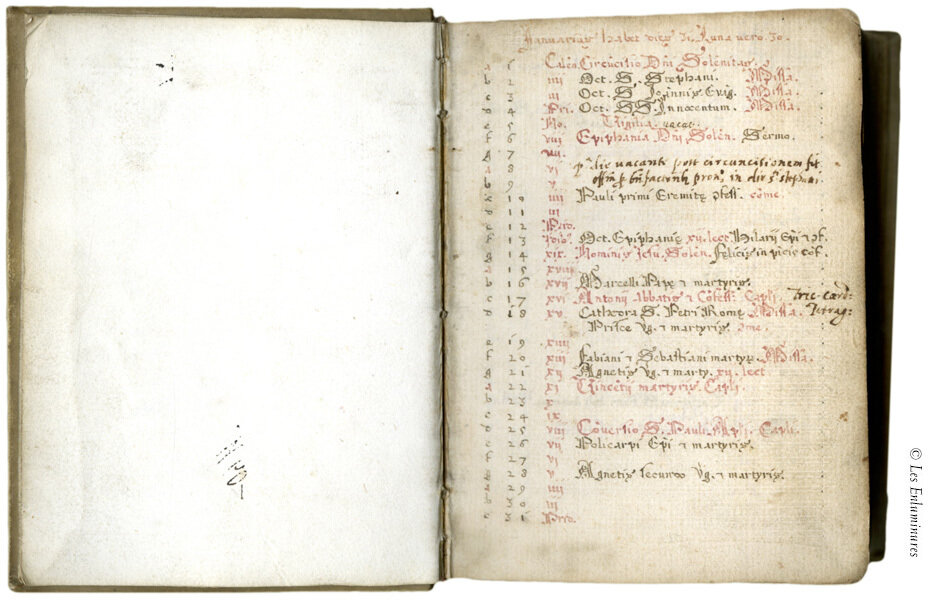 Januarius habet dies 31. Luna vero 30.
Calen. Circucisio Dni Solenitas.
b 2 iiii Oct. S. Stephani. Missa.
c 3 iii Oct. S. Joannis Evãg. Missa.
d 4 Pri. Oct. SS. Innocentum. Missa.
e 5 No. Vigilia. vacat.
f 6 viii Epiphania Dni. Solen. Sermo.
g 7 vii.
a 8 vi die vacanti post circuncisionem
b 9 v in die S. stephani.
c 10 iiii Pauli primi Eremitę cõfess. cõme.
d 11 iii
e 12 Prid.
f 13 Idib9. Oct. Epiphanię xij. lect. Hilarij Epi et cõf.
g 14 xix. Nominis Jesu. Solen. Felicis in picis cõf.
a 15 xviii
b 16 xvii Marcelli Papę et martyris.
c 17 xvi Antonij abbatis et Cõfess. Capli.
d 18 xv Cathedra S. Petri Romę Missa.
Priscę Vg. et martyris. cme.
e 19 xiiii
f 20 xiii Fabiani et Sebastiani martyrum. Missa.
g 21 xii Agnetis Vg. et marty. xij. lect
a 22 xi Vincẽtij martyris. Capli.
b 23 x
c 24 ix
d 25 viii Cõversio S. Pauli. Apli. Capli.
e 26 vii Policarpi Epi et martyris.
f 27 vi
g 28 v Agnetis secundo Vg. et martyris.
a 29 iiii
b 30 iii
c 31 Prid.
© Les Enluminures